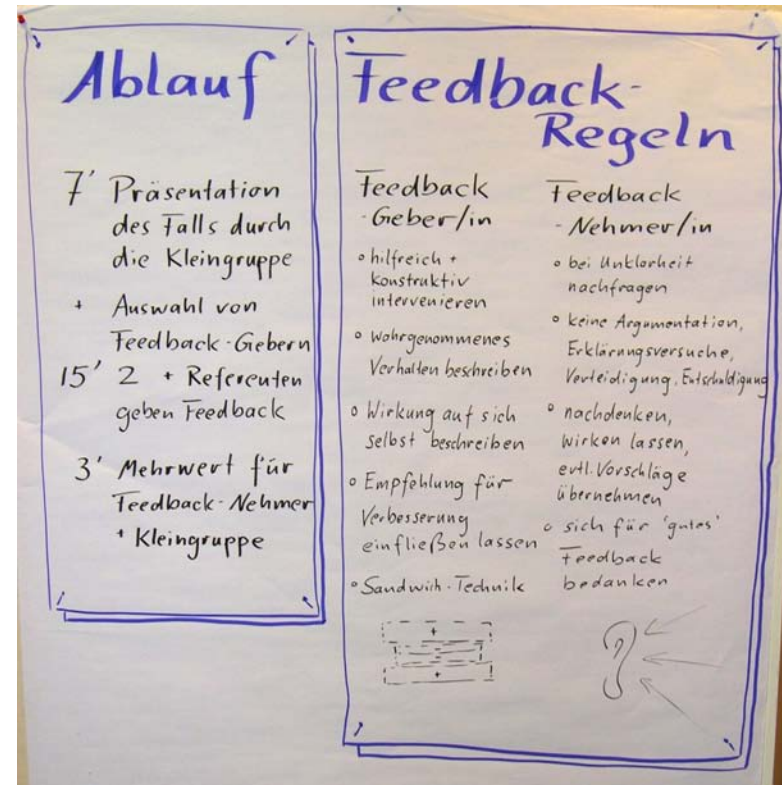 Ablauf
7' Präsentation
des Falls durch
die Kleingruppe
+ Auswahl von
Feedback-Gebern
15' 2 + Referenten
geben Feedback
3' Mehrwert für
Feedback-Nehmer
+ Kleingruppe
Feedback-
Regeln
Feedback
-Geber/in
° hilfreich +
konstruktiv
intervenieren
° Wahrgenommenes
Verhalten beschreiben
° Wirkung auf sich
selbst beschreiben
° Empfehlung für
Verbesserung
einfließen lassen
° Sandwich-Technik
+
+
Feedback
-Nehmer/in
° bei Unklarheit
nachfragen
° keine Argumentation,
Erklärungsversuche,
Verteidigung, Entschuldigung
° nachdenken,
wirken lassen,
evtl. Vorschläge
übernehmen
° sich für 'gutes'
Feedback
bedanken